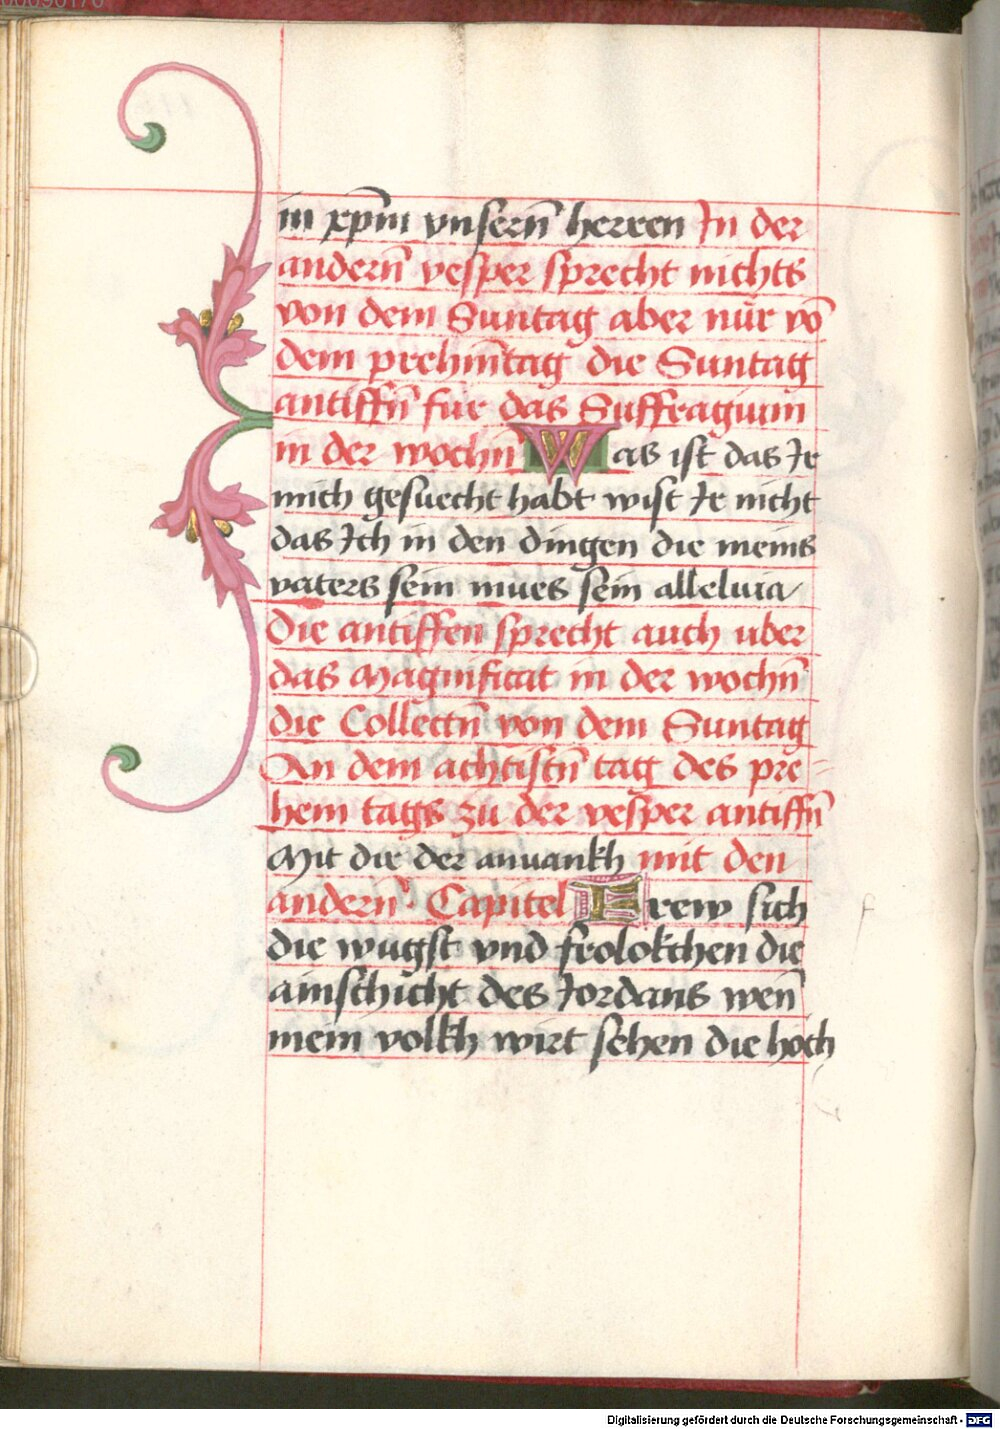 in xp̄m vnsern̄ herren In der
andern̄ vesper sprecht nichts
von dem Suntag aber nůr vō
dem prehm̄tag die Suntag
antiffn̄ fur das Suffragium
in der wochn̄ Was ist das Ir
mich gesuecht habt wist Ir nicht
das Ich in den dingen die meins
vaters sein mues sein alleluia
Die antiffen sprecht auch uber
das Magnificat in der wochn̄
die Collectn̄ von dem Suntag
An dem achtistn̄ tag des pre=
hem tags zu der vesper antiffn̄
Mit die der anuankh mit den
andern̄ Capitel Frew sich
die wugst vnd frolokchen die
ainschicht des Jordans wen̄
mein volkh wirt sehen die hoch
Digitalisierung gefördert durch die Deutsche Forschungsgemeinschaft - DFG